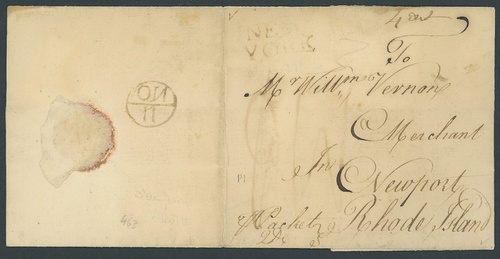 NEW
YORK
To
Mr Willm Vernon
Merchant
In
Newport
Rhode Island
Packet
NO
11
469